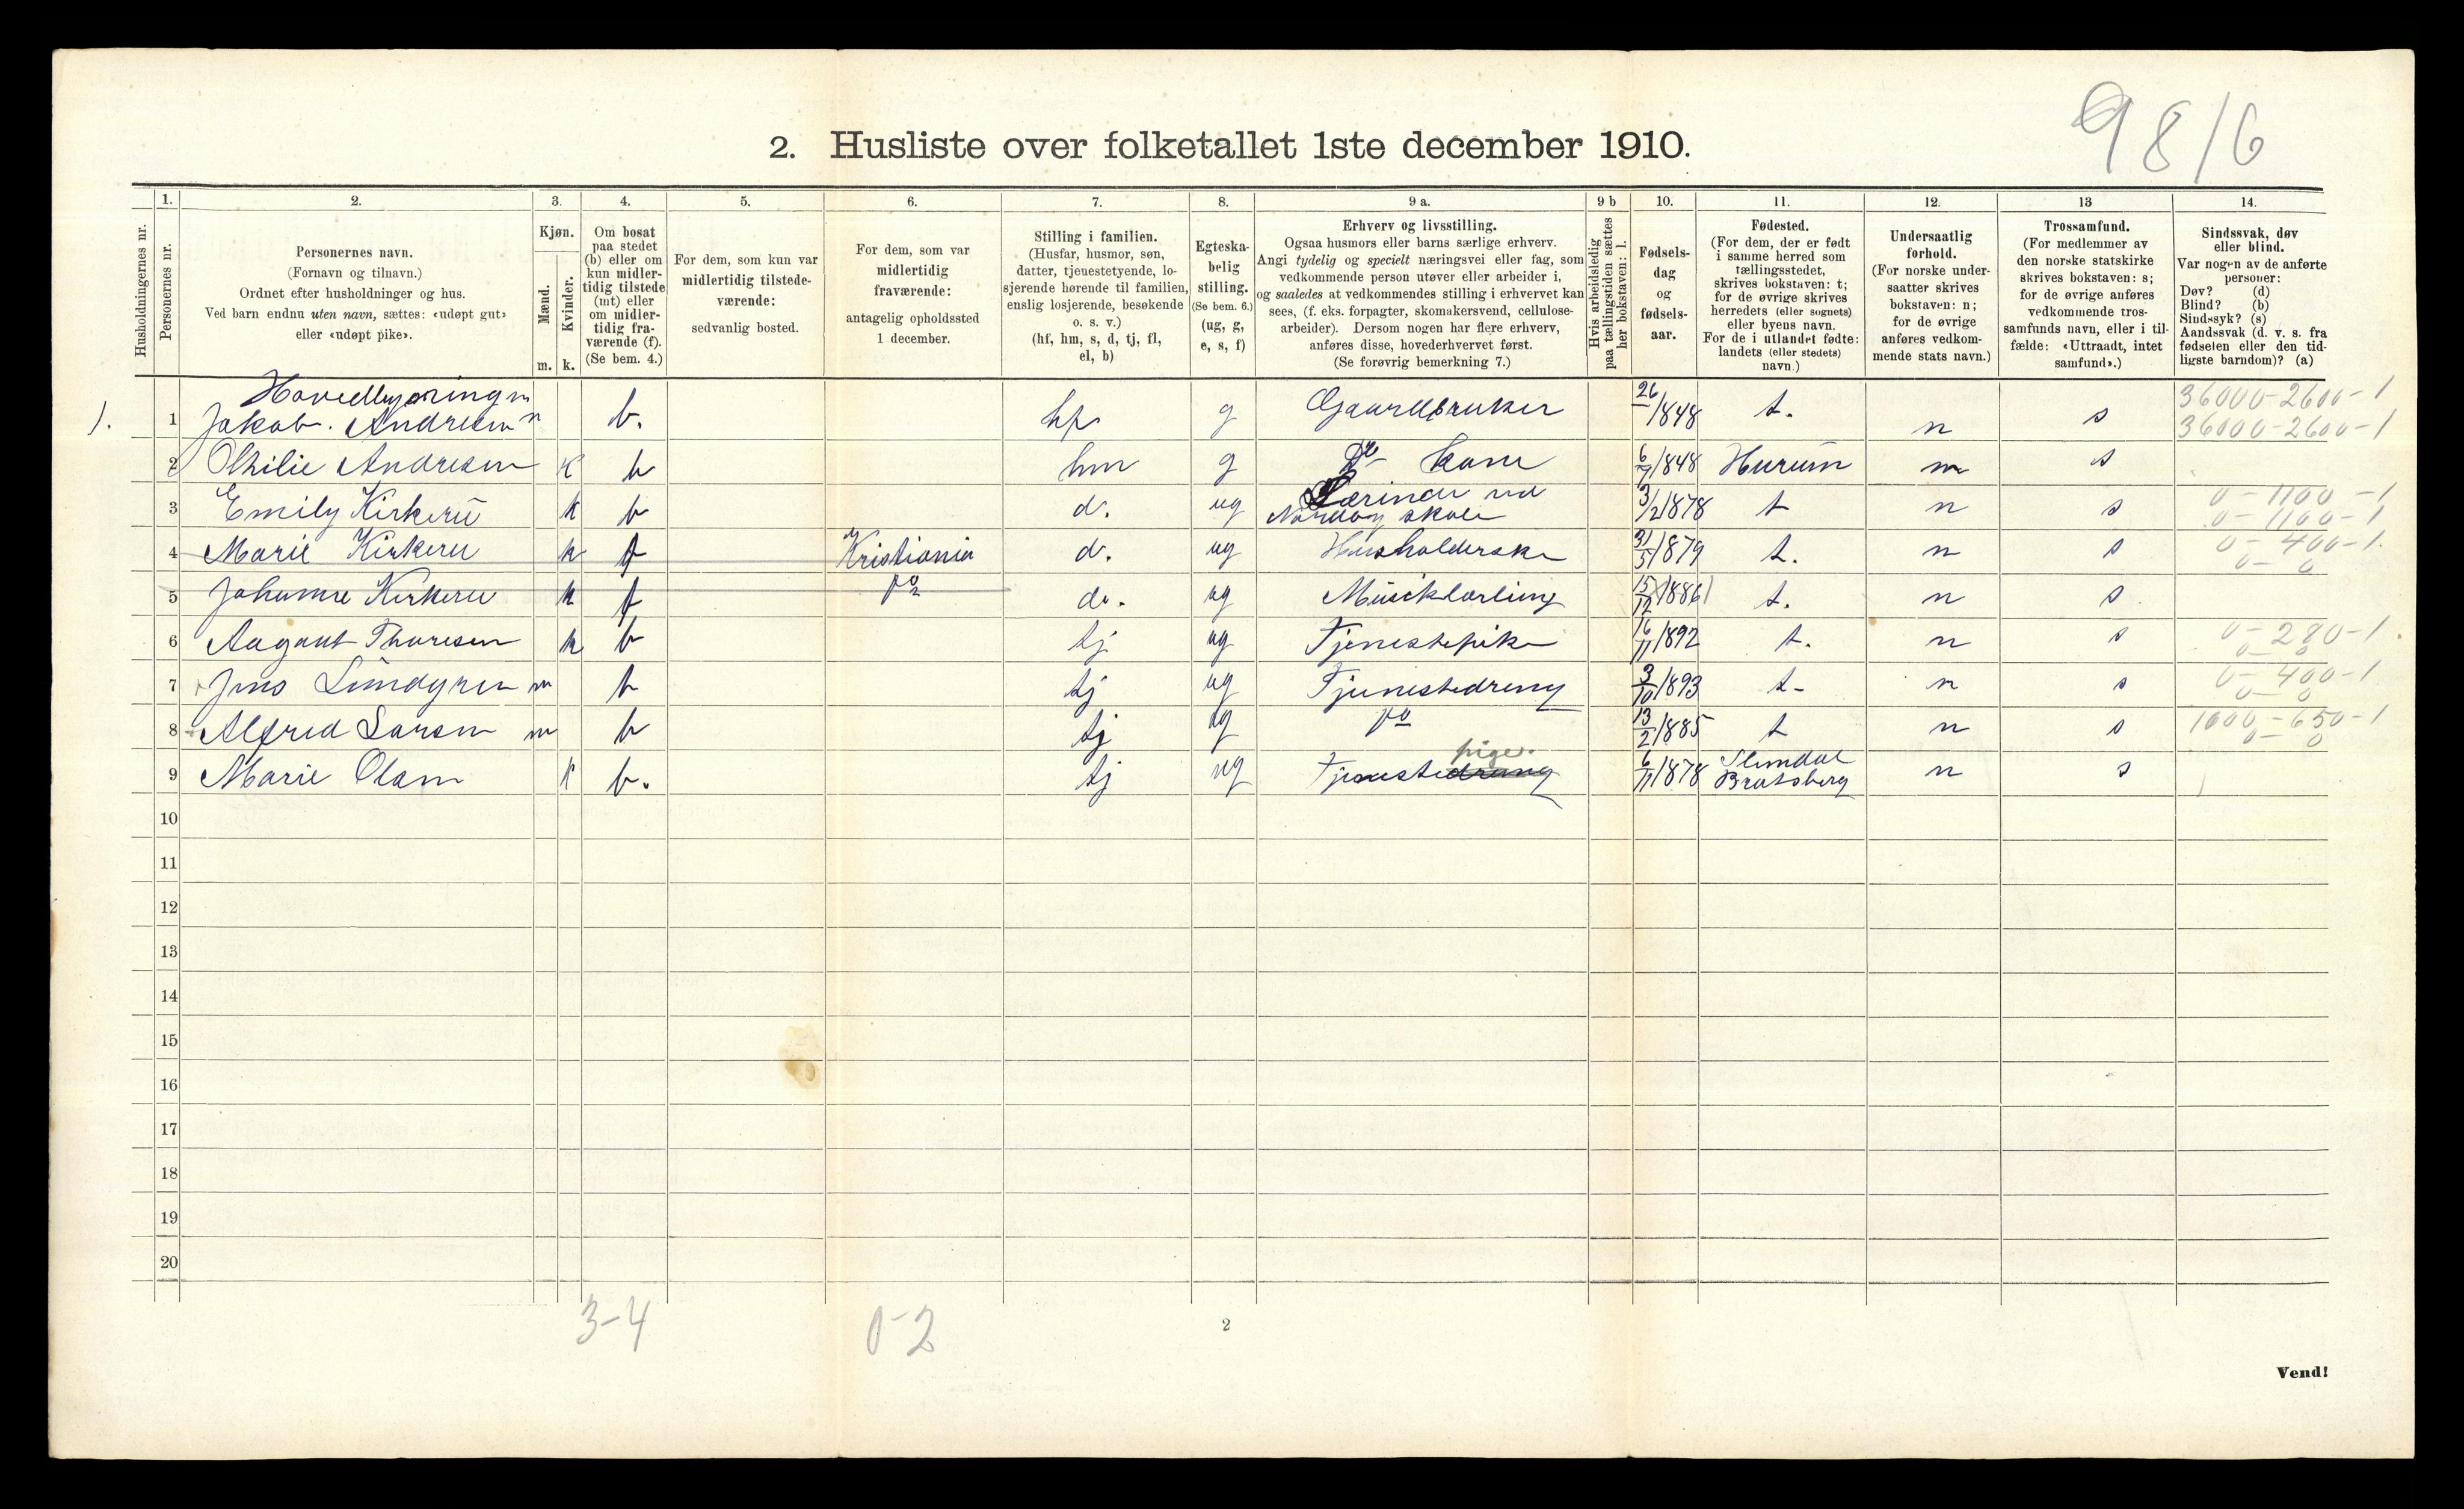 9816
2. Husliste over folketallet 1ste december 1910.
Husholdningernes nr.
1.
Personernes nr.
2.
Personernes navn.
(Fornavn og tilnavn.)
Ordnet efter husholdninger og hus.
Ved barn endnu uten navn, sættes: «udøpt gut»
eller «udøpt pike».
3.
Kjøn.
Mænd.
Kvinder.
m. k.
4.
Om bosat
paa stedet
(b) eller om
kun midler-
tidig tilstede
(mt) eller
om midler-
tidig fra-
værende (f).
(Se bem. 4.)
5.
For dem, som kun var
midlertidig tilstede-
værende:
sedvanlig bosted.
6.
For dem, som var
midlertidig
fraværende:
antagelig opholdssted
1 december.
7.
Stilling i familien.
(Husfar, husmor, søn,
datter, tjenestetyende, lo-
sjerende hørende til familien,
enslig losjerende, besøkende
o. s. v.)
(hf, hm, s, d, tj, fl,
el, b)
8.
Egteska-
belig
stilling.
(Se bem. 6.)
(ug, g,
e, s, f)
9 a.
Erhverv og livsstilling.
Ogsaa husmors eller barns særlige erhverv.
Angi tydelig og specielt næringsvei eller fag, som
vedkommende person utøver eller arbeider i,
og saaledes at vedkommendes stilling i erhvervet kan
sees, (f. eks. forpagter, skomakersvend, cellulose-
arbeider). Dersom nogen har flere erhverv,
anføres disse, hovederhvervet først.
(Se forøvrig bemerkning 7.)
9 b
Hvis arbeidsledig
paa tællingstiden sættes
her bokstaven: l.
10.
Fødsels-
dag
og
fødsels-
aar.
11.
Fødested.
(For dem, der er født
i samme herred som
tællingsstedet,
skrives bokstaven: t;
for de øvrige skrives
herredets (eller sognets)
eller byens navn.
For de i utlandet fødte:
landets (eller stedets)
navn.)
12.
Undersaatlig
forhold.
(For norske under-
saatter skrives
bokstaven: n;
for de øvrige
anføres vedkom-
mende stats navn.)
13
Trossamfund.
(For medlemmer av
den norske statskirke
skrives bokstaven: s;
for de øvrige anføres
vedkommende tros-
samfunds navn, eller i til-
fælde: «Uttraadt, intet
samfund».)
14.
Sindssvak, døv
eller blind.
Var nogen av de anførte
personer:
Døv? (d)
Blind? (b)
Sindssyk? (s)
Aandssvak (d. v. s. fra
fødselen eller den tid-
ligste barndom)? (a)
Hovedbygningen
1. 1 Jakob. Andresen m b. hf g Gaardbruker 26/ 1848 t. n s 36000-2600-1
36000-2600-1
2 Othilie Andresen k b hm g Do kone 6/7 1848 Hurum n s
3 Emily Kirkerü k b d. ug Lærinde ved
Nordby skole 3/2 1878 t n s 0-1100-1
0-1100-1
4 Marie Kirkerü k f Kristiania d. ug Husholderske 31/5 1879 t. n s 0-400-1
0-0
5 Johanne Kirkerü k f do d. ug Musiklærling 15/12 1886 t. n s
6 Aagaut Thoresen k b tj ug Tjenestepike 16/11 1892 t. n s 0-280-1
0-0
7 Jens Lundgren m b tj ug Tjenestedreng 3/10 1893 t- n s 0-400-1
0-0
8 Alfred Larsen m b tj ug do 13/2 1885 t n s 1000-650-1
0-0
pige.
9 Marie Olsen k b. tj ug Tjenestedreng 6/11 1878 Slemdal
Bratsberg n s
10
11
12
13
14
15
16
17
18
19
20
3-4
0-2
2
Vend!